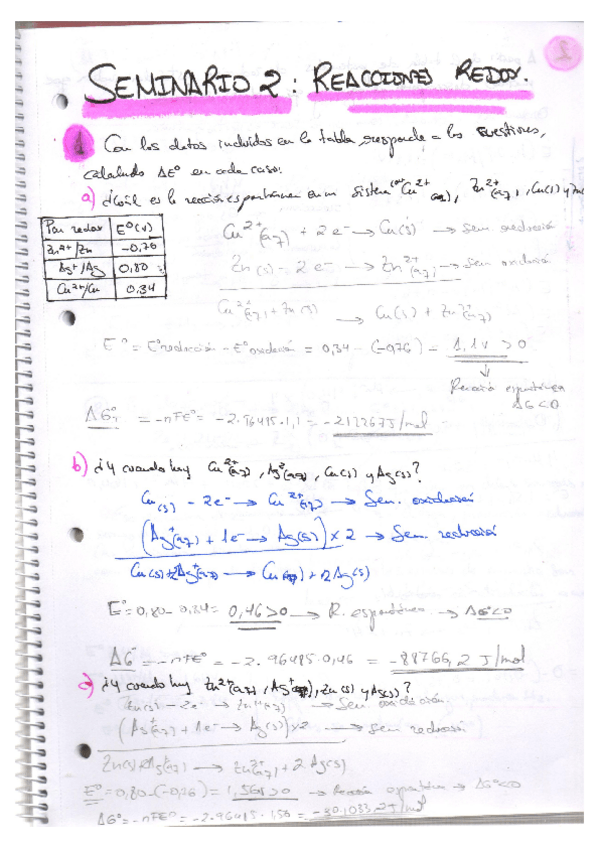 2
SEMINARIO 2: REACCIONES REDOX.
1 Con los datos incluidos en la tabla, responde a las cuestiones,
calculando ΔEº en cada caso:
a) ¿Cuál es la reacción espontánea en un sistema con Cu²⁺(aq), Zn²⁺(aq), Cu(s) y
Par redox E⁰(v)
Zn²⁺/Zn -0,76
Ag⁺/Ag 0,80
Cu²⁺/Cu 0,34
Cu²⁺(aq) + 2e⁻ → Cu(s) → Sem. reducción
Zn(s) - 2e⁻ → Zn²⁺(aq) → Sem. oxidación
Cu²⁺(aq) + Zn(s) → Cu(s) + Zn²⁺(aq)
Eº = Eºreducción - Eºoxidación = 0,34 - (-0,76) = 1,1v > 0
Reacción espontánea
ΔG<0
ΔGº = -nFEº = -2·96485·1,1 = -212267J/mol
b) ¿Y cuando hay Cu²⁺(aq), Ag⁺(aq), Cu(s) y Ag(s)?
Cu(s) - 2e⁻ → Cu²⁺(aq) → Sem. oxidación
(Ag⁺(aq) + 1e⁻ → Ag(s)) × 2 → Sem. reducción
Cu(s) + 2Ag⁺(aq) → Cu(aq) + 2Ag(s)
Eº = 0,80 - 0,34 = 0,46 > 0 → R. espontánea → ΔG<0
ΔGº = -nFEº = -2·96485·0,46 = -88766,2 J/mol
c) ¿Y cuando hay Zn²⁺(aq), Ag⁺(aq), Zn(s) y Ag(s)?
Zn(s) - 2e⁻ → Zn²⁺(aq) → Sem. oxidación
(Ag⁺(aq) + 1e⁻ → Ag(s)) × 2 → Sem. reducción
Zn(s) + Ag⁺(aq) → Zn²⁺(aq) + 2Ag(s)
Eº = 0,80 - (-0,76) = 1,56 > 0 → Reacción espontánea → ΔGº<0
ΔGº = -nFEº = -2·96485·1,56 = -301033,2J/mol